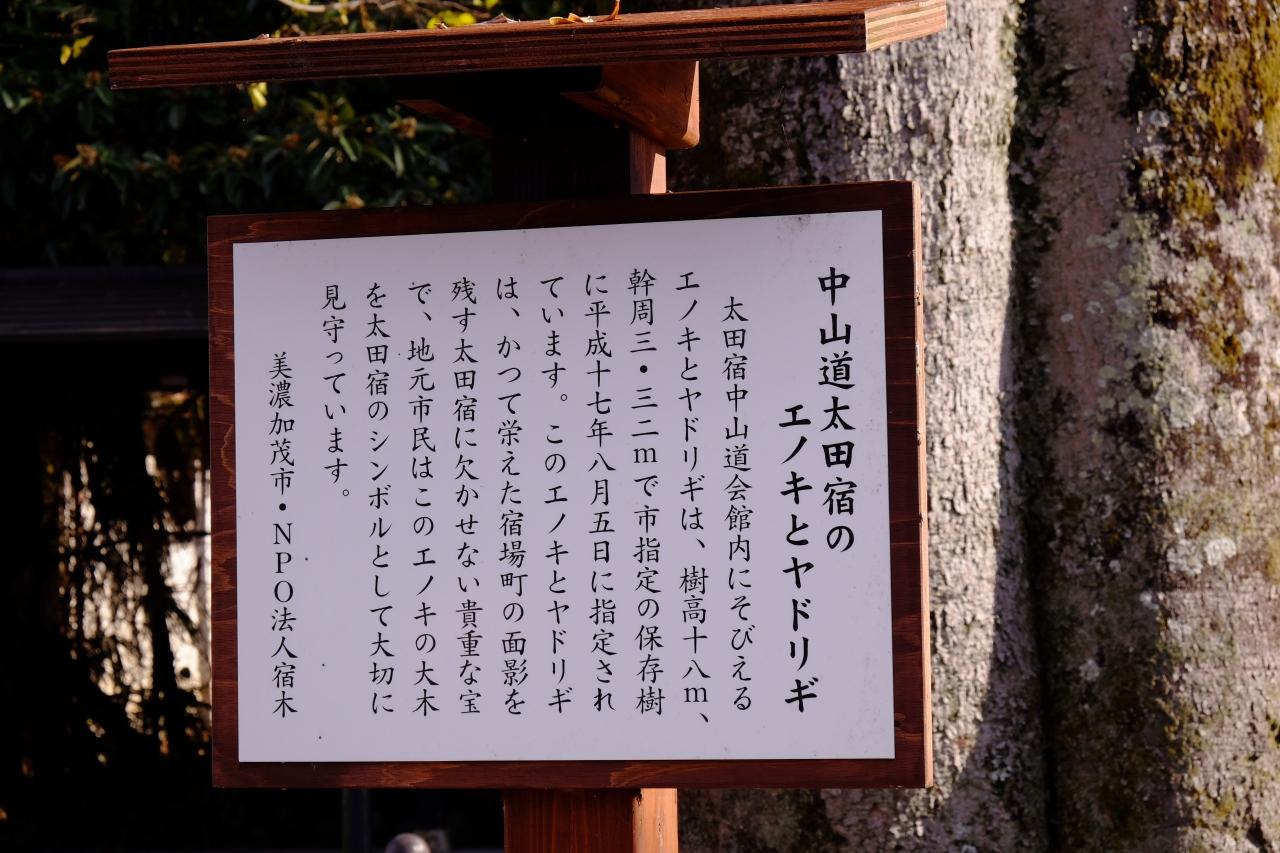 中山道太田宿の
エノキとヤドリギ
太田宿中山道会館内にそびえる
エノキとヤドリギは、樹高十八m、
幹周三・三二mで市指定の保存樹
に平成十七年八月五日に指定され
ています。このエノキとヤドリギ
は、かつて栄えた宿場町の面影を
残す太田宿に欠かせない貴重な宝
で、地元市民はこのエノキの大木
を太田宿のシンボルとして大切に
見守っています。
美濃加茂市・NPO法人宿木